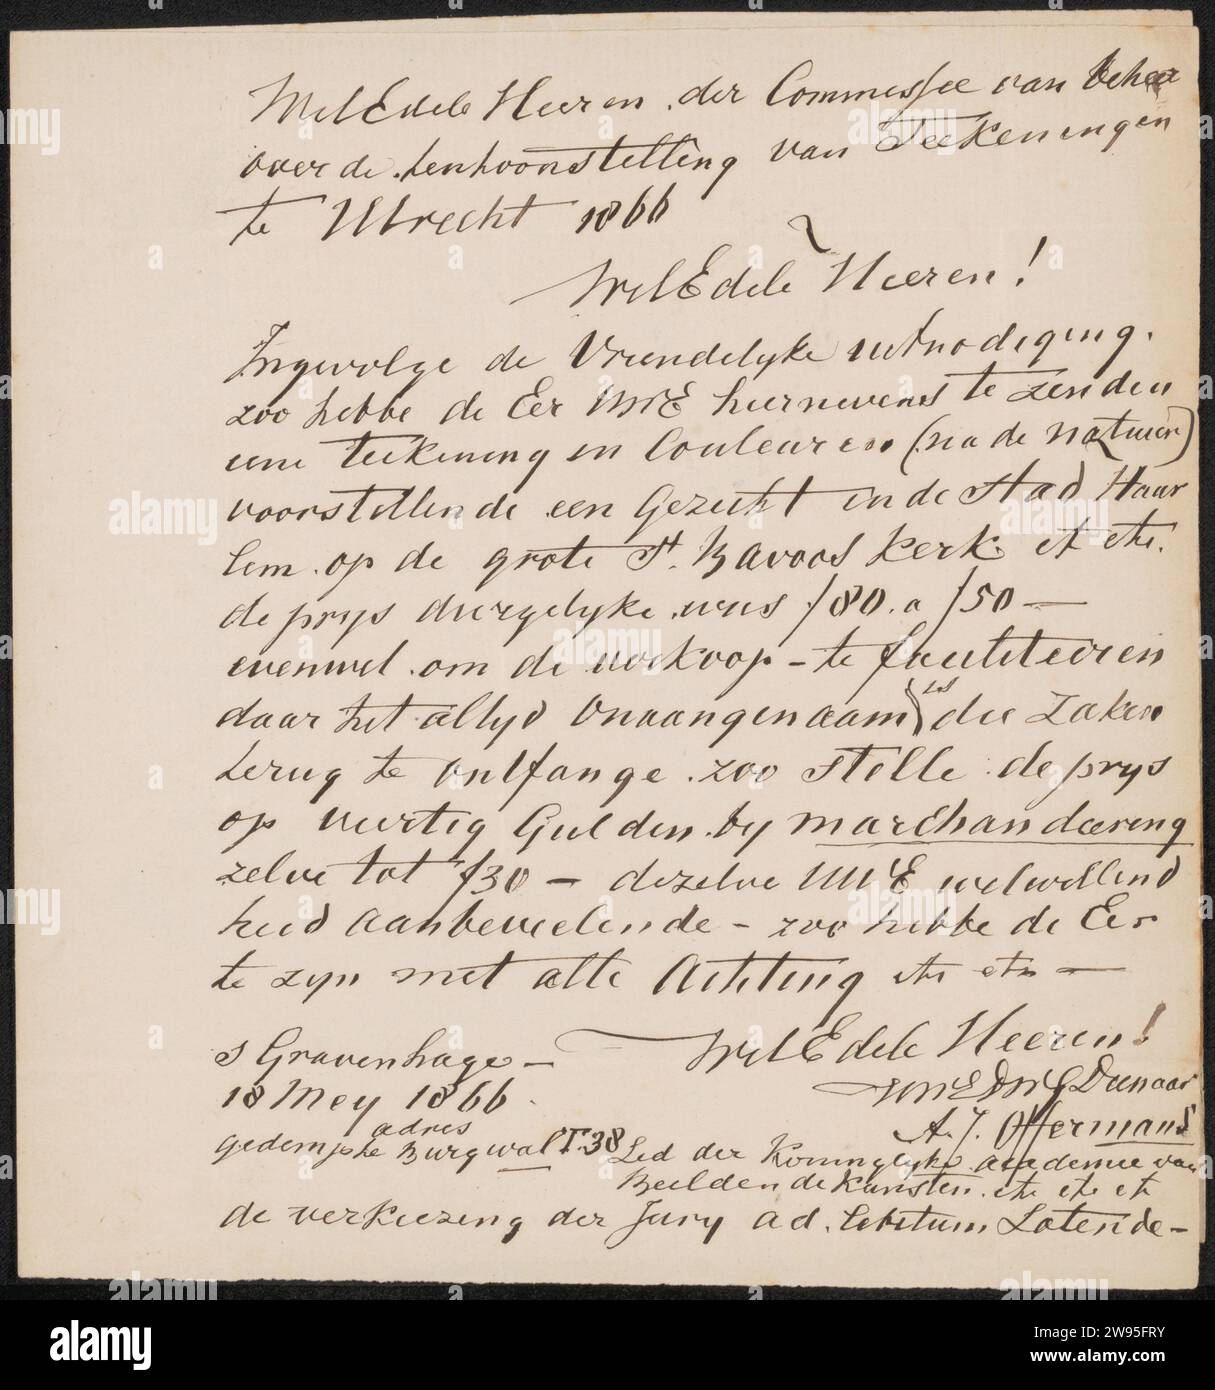 WelEdele Heeren der Commissee van beheer
over de tenhoonstelling van Teekeningen
te Utrecht 1866
WelEdele Heeren!
Ingevolge de Vriendelyke uitnodiging.
zoo hebbe de Eer UWE hiernevens te zenden
eene teekening in Couleuren (na de natuur)
voorstellende een Gezicht in de stad Haar
lem op de grote St. Bavoos kerk et etc.
de prys diergelyke was f80. a f50 —
evenwel om de verkoop - te faciliteeren
daar het altyd Onaangenaam is die Zaken
terug te ontfange zoo stelle de prys
op veertig Gulden by marchandeering
zelve tot f30 — dezelve UWE welwillend
heid aanbeveelende - zoo hebbe de Eer
te zyn met alle Achting etc etc —
WelEdele Heeren!
s Gravenhage —
18 Mey 1866.
UWEDWG Dienaar
A. J. Offermans
adres
gedempte Burgwal T.38
Led der Koninglyke academie van
Beeldende Kunsten. etc etc etc
de verkiezing der Jury ad. libitum Latende -
alamy
Image ID: 2W95FRY
www.alamy.com